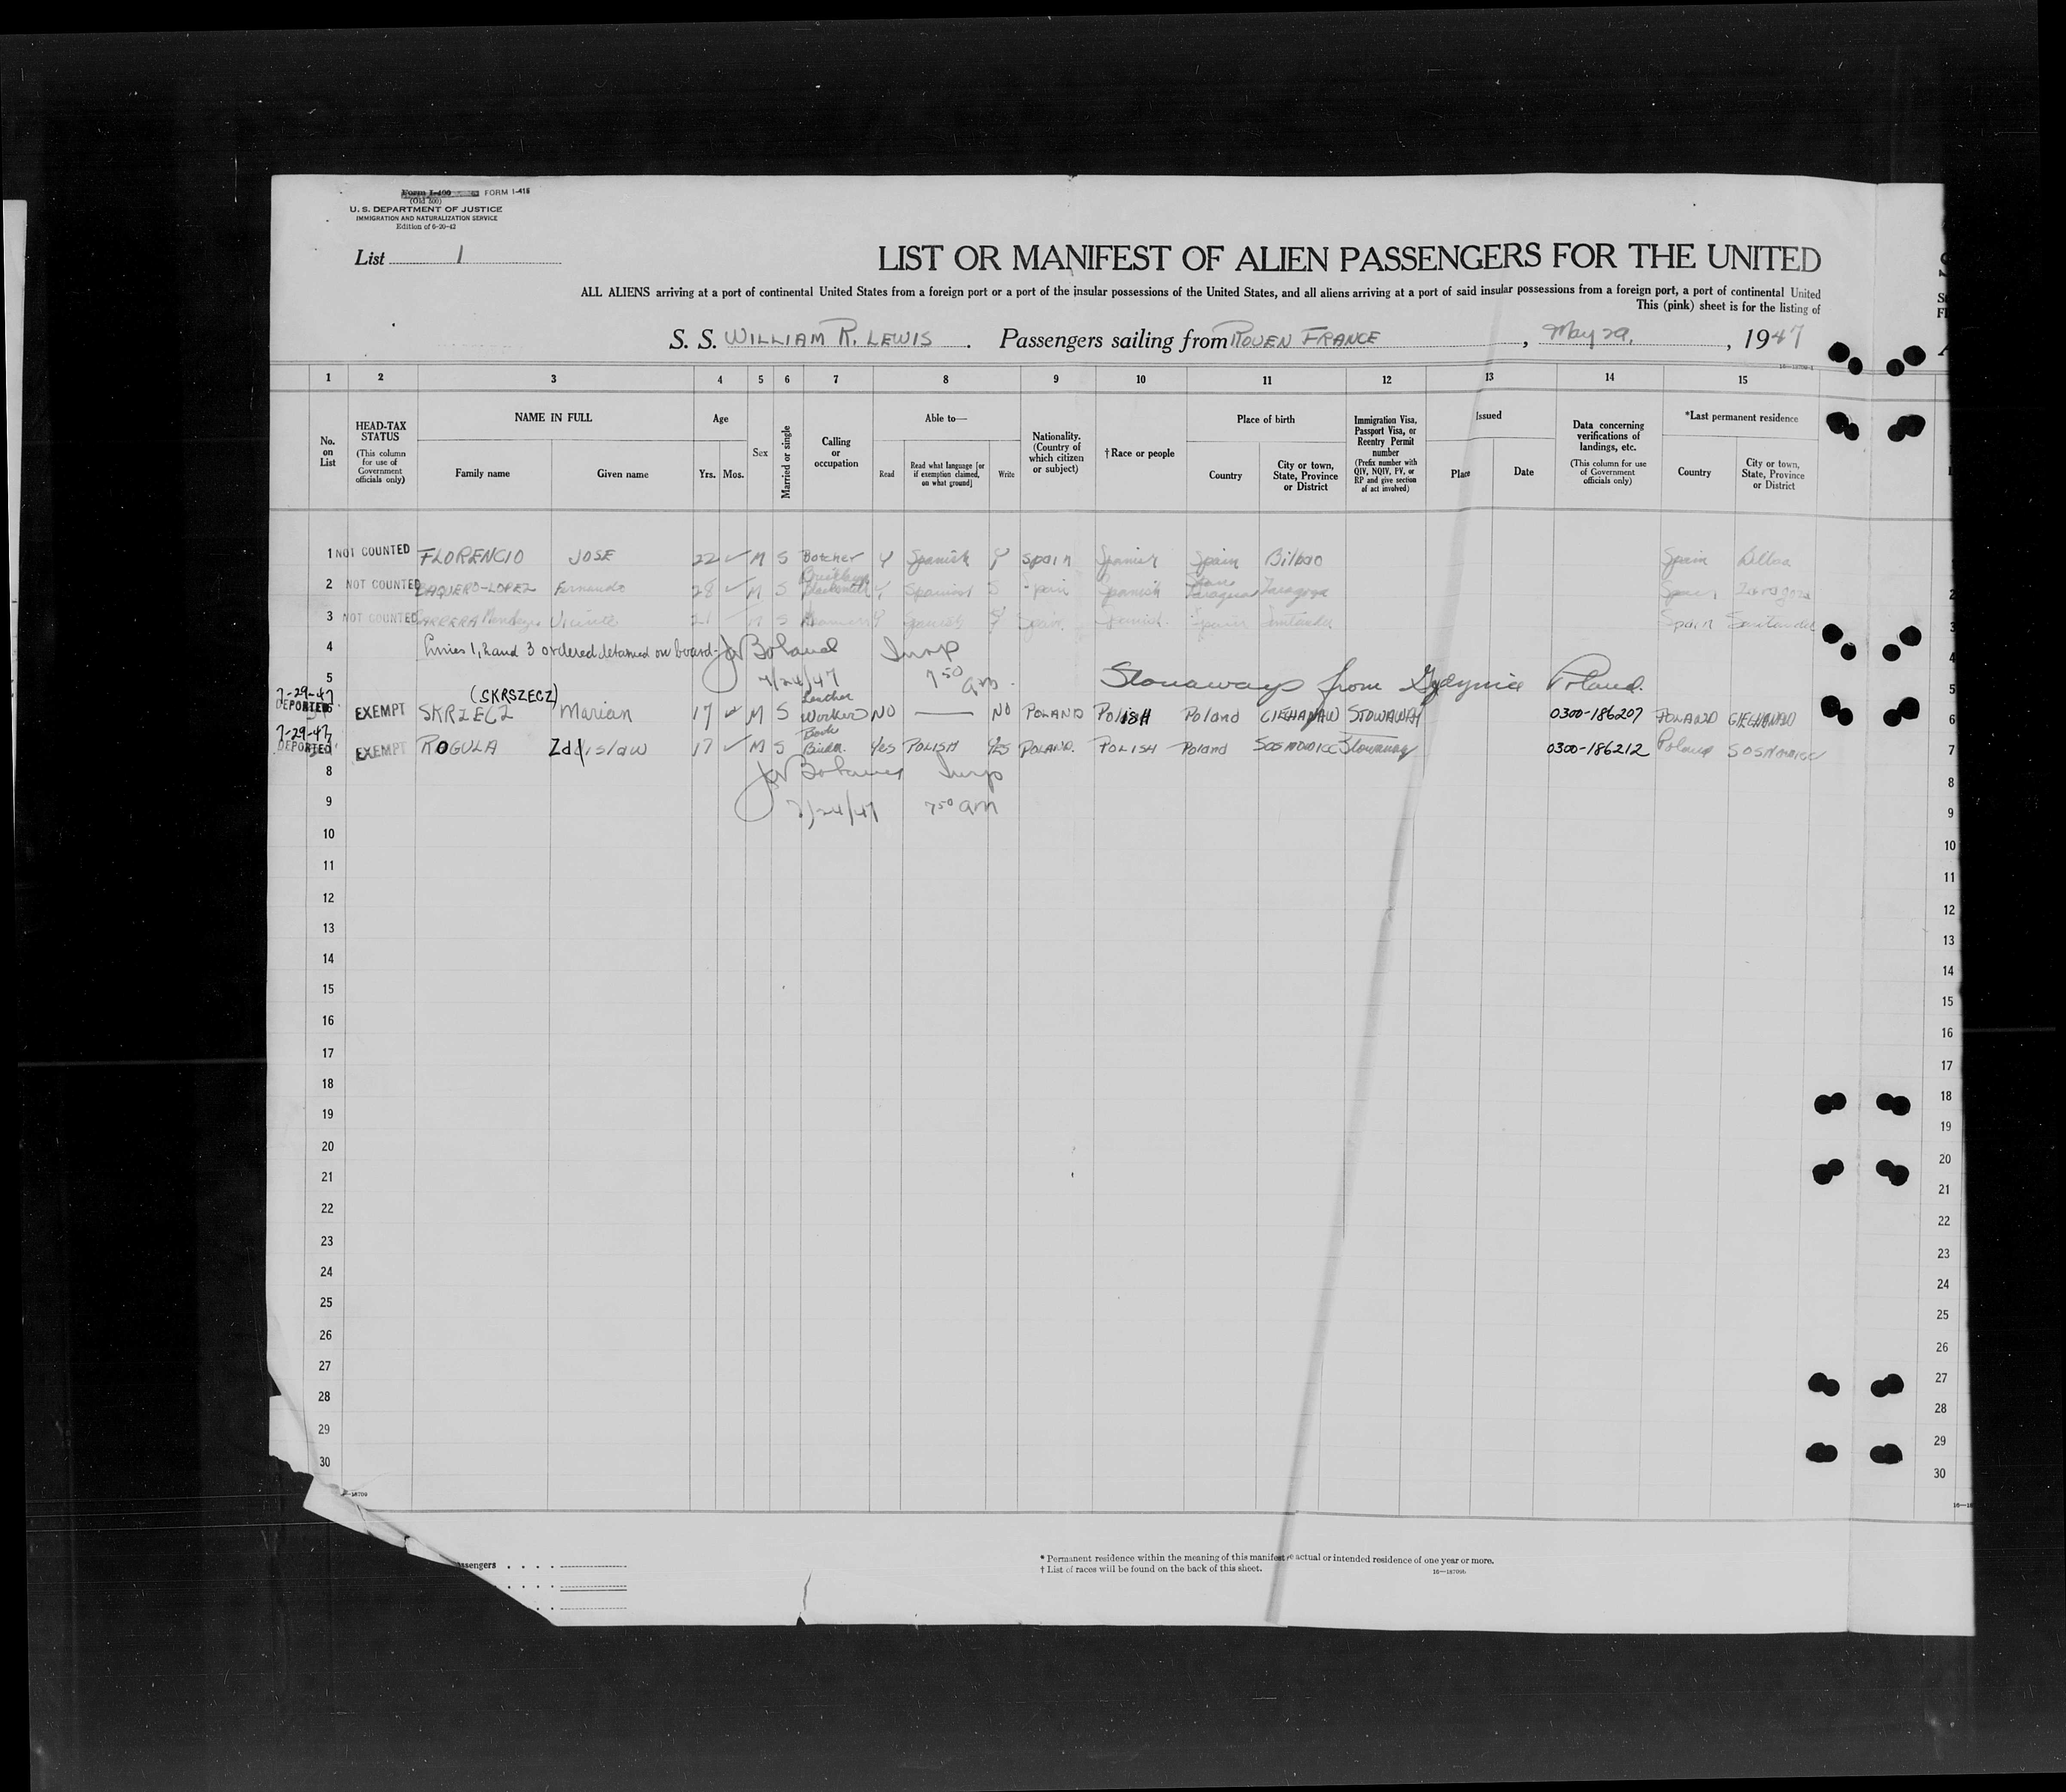 Form I-400 FORM I-415
(Old 500)
U. S. DEPARTMENT OF JUSTICE
IMMIGRATION AND NATURALIZATION SERVICE
Edition of 6-20-42
List 1
LIST OR MANIFEST OF ALIEN PASSENGERS FOR THE UNITED
ALL ALIENS arriving at a port of continental United States from a foreign port or a port of the insular possessions of the United States, and all aliens arriving at a port of said insular possessions from a foreign port, a port of continental United
This (pink) sheet is for the listing of
S. S. WILLIAM R. LEWIS . Passengers sailing from ROUEN FRANCE , May 29, , 1947
1 2 3 4 5 6 7 8 9 10 11 12 13 14 15
No. on List
HEAD-TAX STATUS (This column for use of Government officials only)
NAME IN FULL
Family name Given name
Age
Yrs. Mos.
Sex
Married or single
Calling or occupation
Able to—
Read Read what language [or if exemption claimed, on what ground] Write
Nationality. (Country of which citizen or subject)
†Race or people
Place of birth
Country City or town, State, Province or District
Immigration Visa, Passport Visa, or Reentry Permit number (Prefix number with QIV, NQIV, PV, or RP and give section of act involved)
Issued
Place Date
Data concerning verifications of landings, etc. (This column for use of Government officials only)
*Last permanent residence
Country City or town, State, Province or District
1 NOT COUNTED FLORENCIO JOSE 22 ✓ M S Botcher Y Spanish Y Spain Spanish Spain Bilbao Spain Bilboa
2 NOT COUNTED BAQUERO-LOPEZ Fernando 28 ✓ M S Blacksmith Y Spanish Spain Spanish Zaragoza Spain Zaragoza 2
3 NOT COUNTED Vicente 21 M S Y Spanish Y Spain Spanish Spain Santander Spain Santander 3
4 Lines 1, 2 and 3 ordered detained on board - JW Boland Insp 4
5 7/24/47 7 50 am. Stowaways from Gydynia Poland. 5
7-29-47 DEPORTED 6 EXEMPT SKRZECZ (SKRSZECZ) Marian 17 M S Leather Worker NO — NO POLAND POLISH Poland CIEHANAW STOWAWAY 0300-186207 POLAND CIEHANAW 6
7-29-47 DEPORTED EXEMPT ROGULA Zdzislaw 17 ✓ M S Book Binder Yes POLISH YES POLAND. POLISH Poland SOSNOWICC Stowaway 0300-186212 Poland SOSNOWICC 7
8 JW Boland Insp 8
9 7/24/47 7 50 am 9
10 10
11 11
12 12
13 13
14 14
15 15
16 16
17 17
18 18
19 19
20 20
21 21
22 22
23 23
24 24
25 25
26 26
27 27
28 28
29 29
30 30
* Permanent residence within the meaning of this manifest actual or intended residence of one year or more.
† List of races will be found on the back of this sheet.